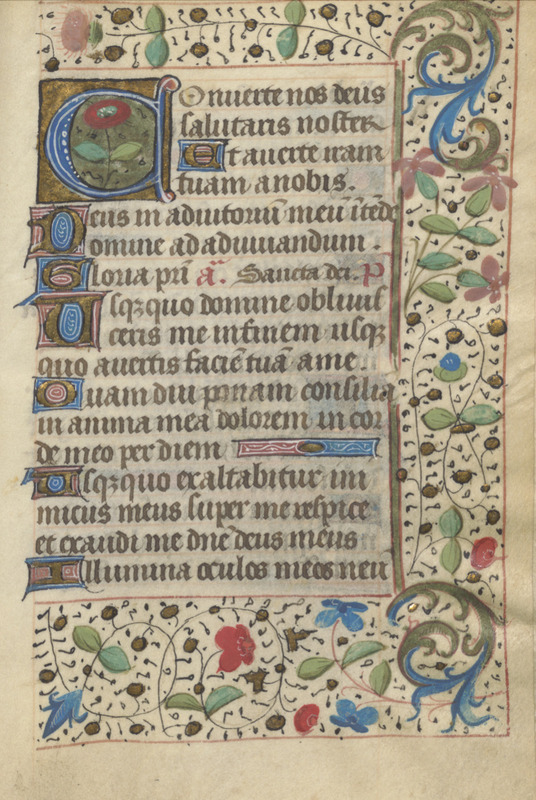 Conuerte nos deus
salutaris noster
Et auerte iram
tuam a nobis.
Deus in adiutoriū meū ītēde
Domine ad adiuuandum.
Gloria pr̄i a͞. Sancta dei. P
Usqꝫ quo domine obliuis
ceris me in finem usqꝫ
quo auertis faciē tuā a me.
Quam diu ponam consilia
in anima mea dolorem in cor
de meo per diem
Usqꝫ quo exaltabitur ini
micus meus super me respice
et exaudi me dn̄e deus meus
Illumina oculos meos neū